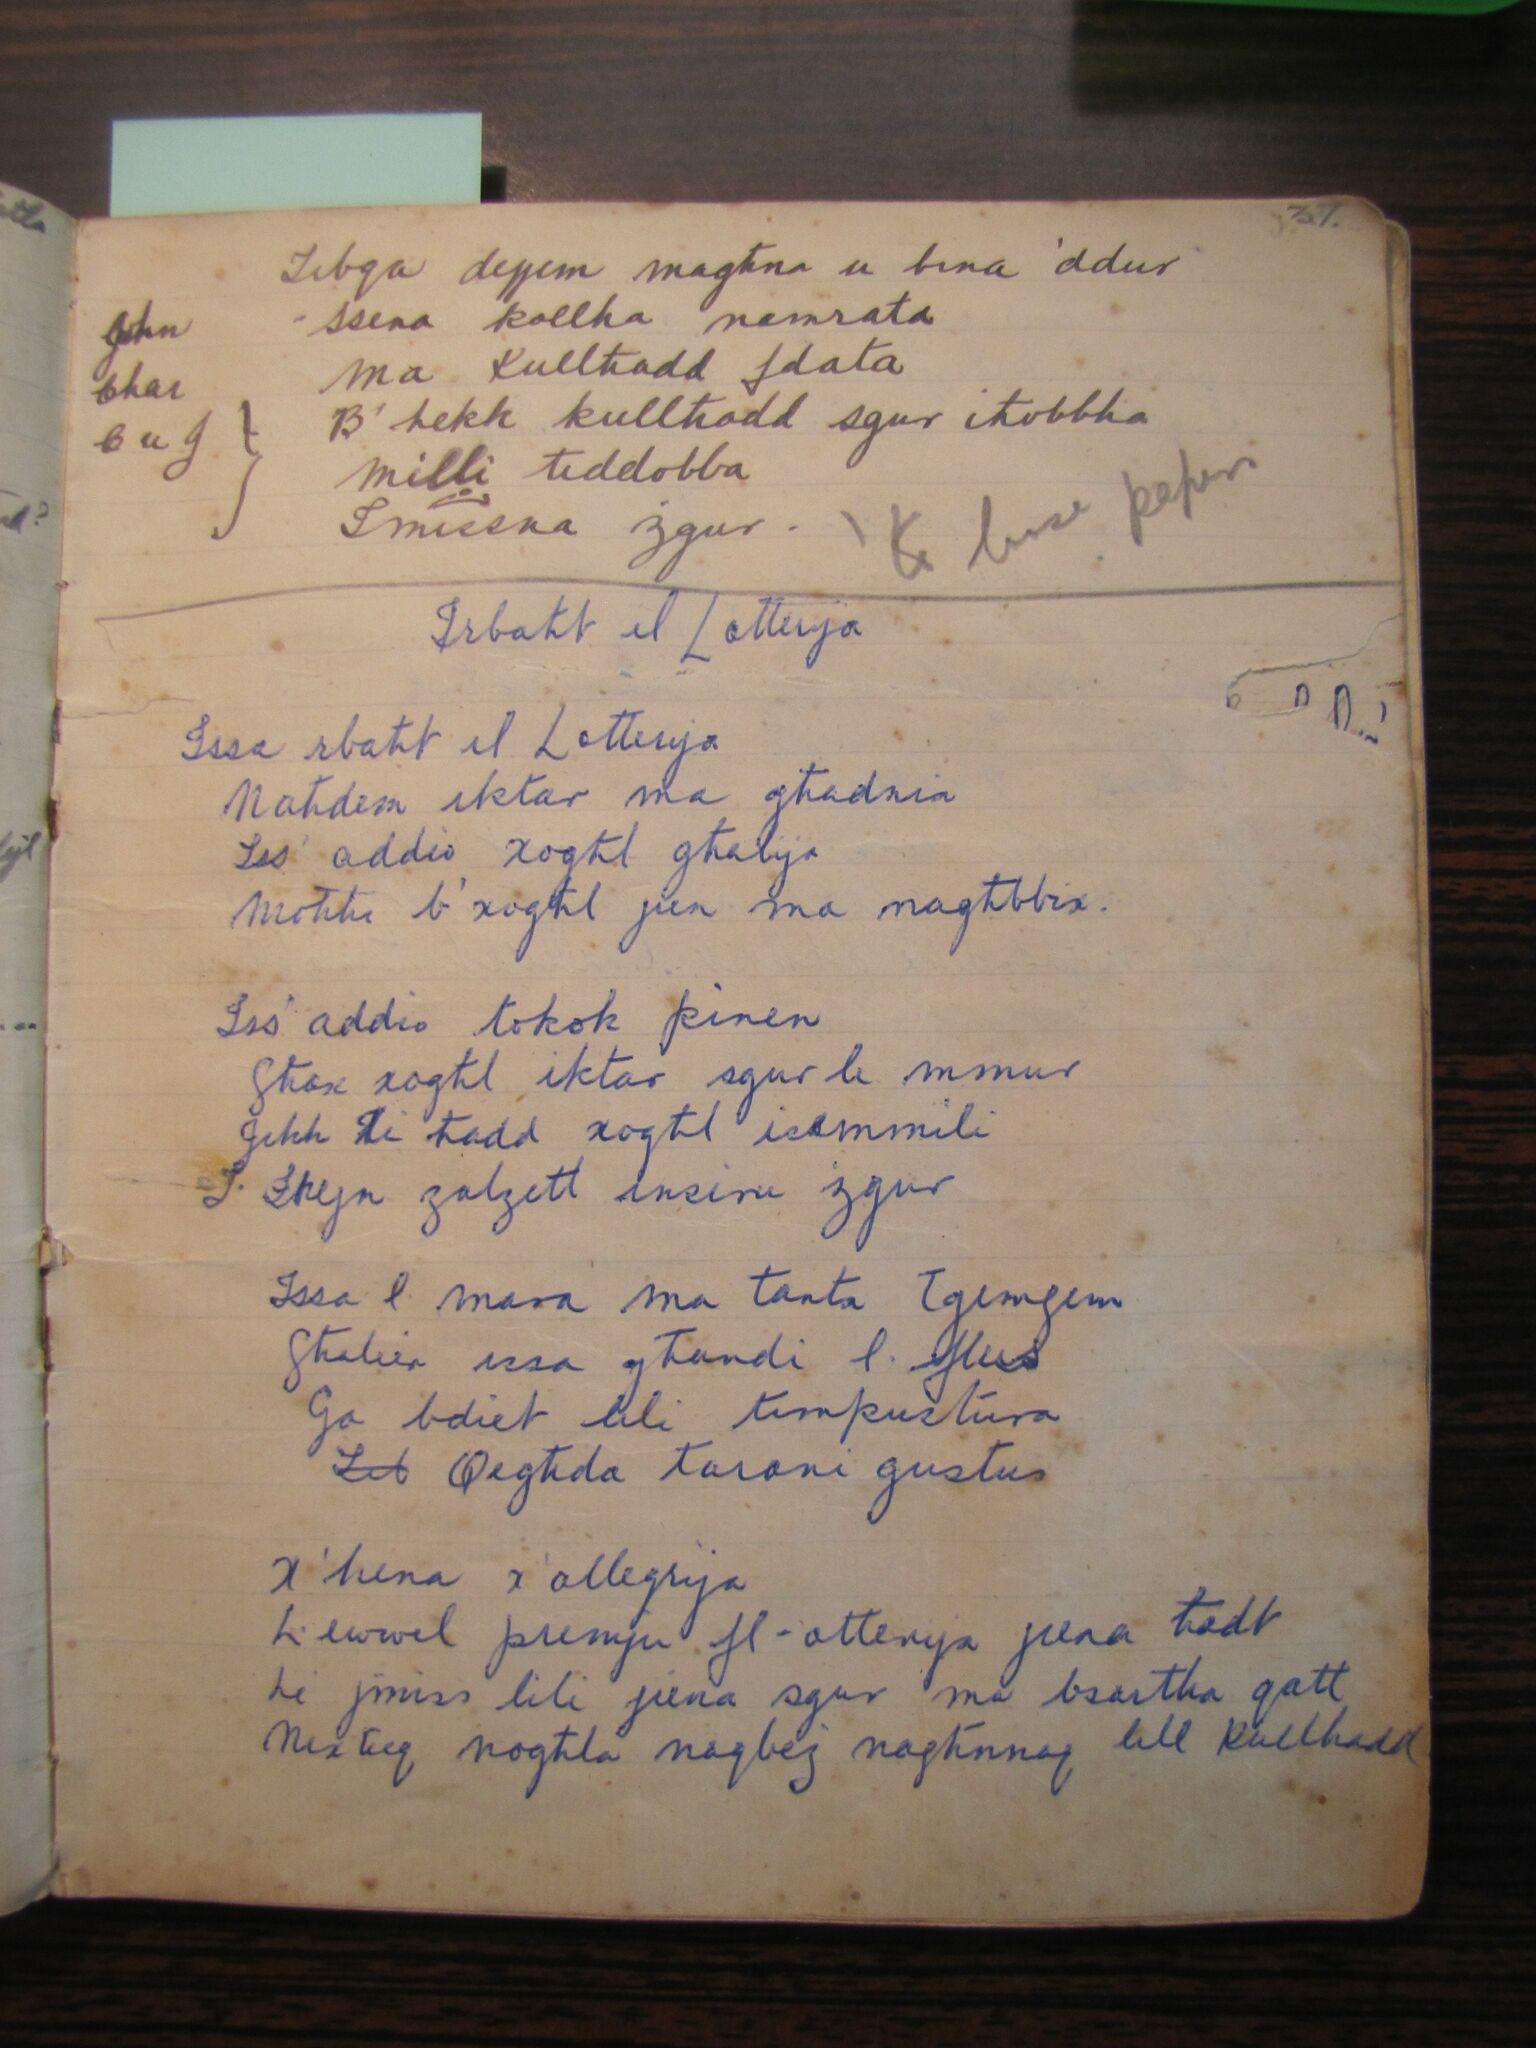 37.
Tibqa dejjem magħna u bina 'ddur
John - Ssena kollha namrata
Char Ma Kullħadd fdata
C u J } B'hekk kullħadd sgur iħobbha
Milli tiddobba
Tmissna zgur.
Irbaħt il Lotterija
Issa rbaħt il Lotterija
Naħdem iktar ma għadnix
Iss' addio xogħl għalija
Moħħi b'xogħl jien ma nagħtbbix.
Iss' addio tokok pinen
Għax xogħl iktar sgur le mmur
Jekk li ħadd xogħl isemmili
I. Ħejn zalzett insiru zgur
Issa l mara ma tantx Tgemgem
Għaliex issa għandi l. flus
Ga bdiet lili timpustura
Qegħda tarani gustus
X'hena x'allegrija
L ewwel premju fl-otterija jiena ħadt
Li jmiss lili jiena sgur ma bsartha qatt
Nixtieq nogħla naqbeż nagħnnaq lill Kullħadd